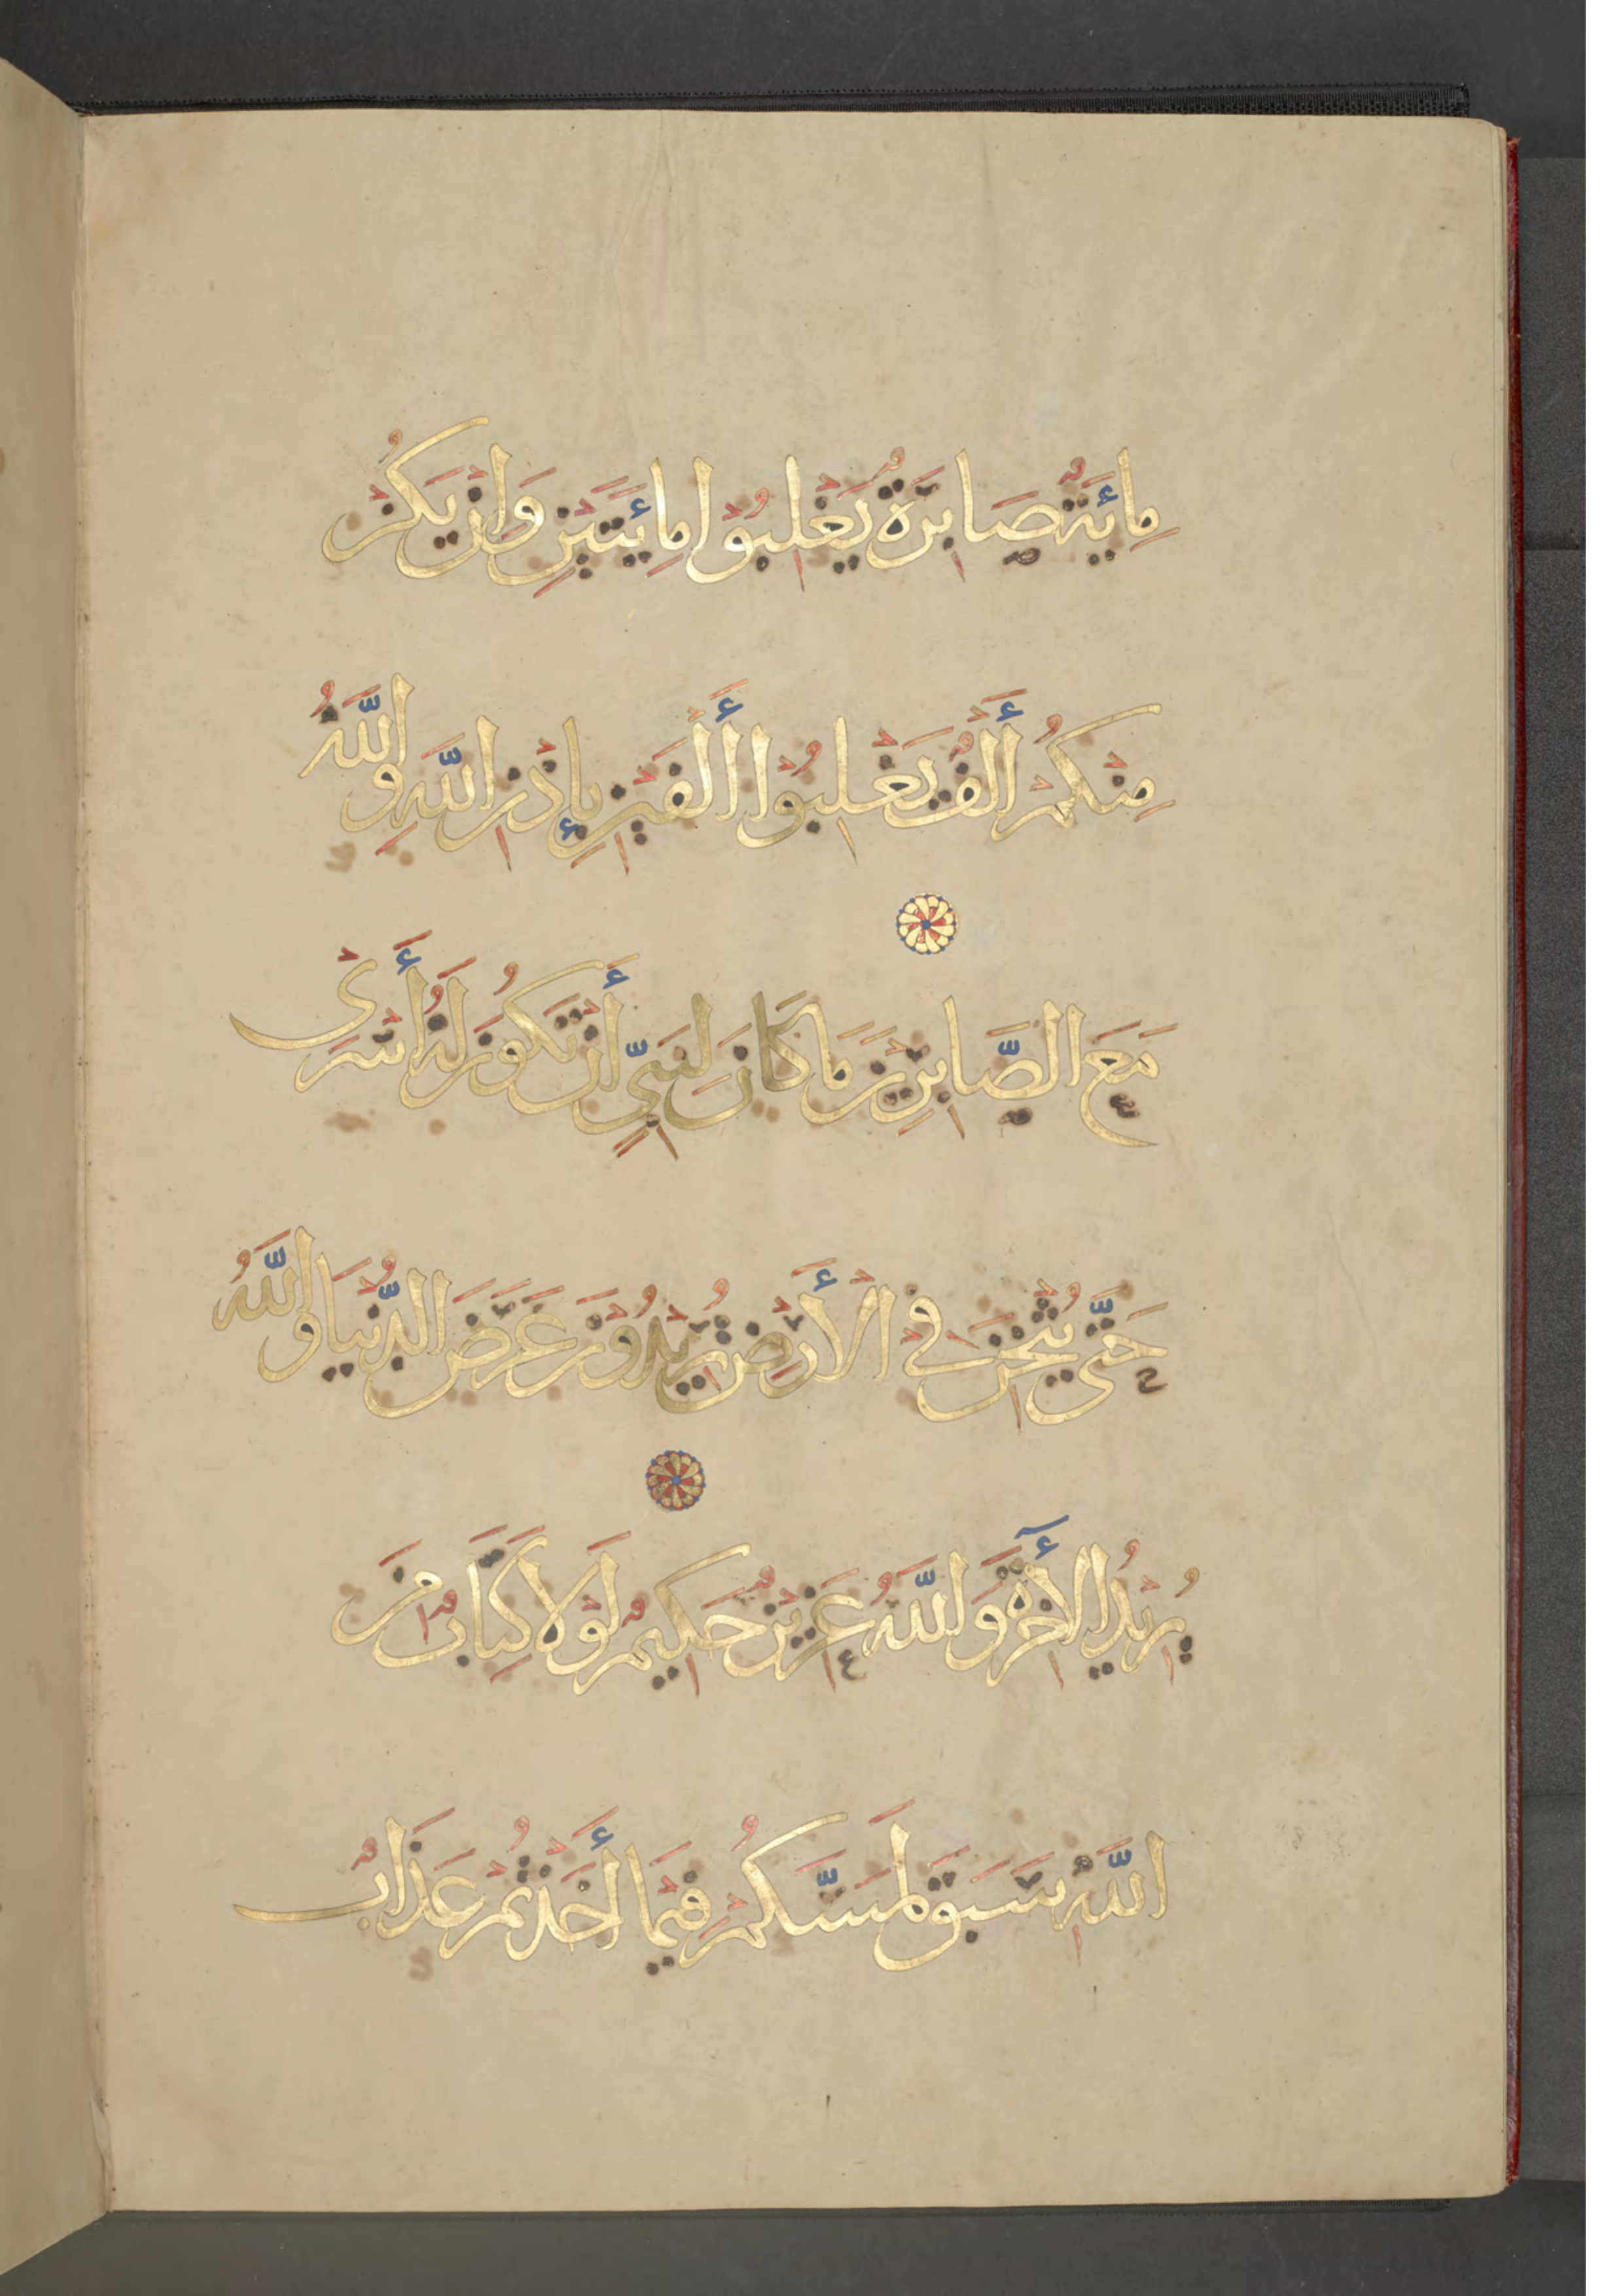 مِائَةٌ صَابِرَةٌ يَغْلِبُوْا مِائَتَيْنِ وَإنْ يَكُنْ
مِنْكُمْ أَلْفٌ يَغْلِبُوْا أَلْفَيْنِ بِإِذْنِ اللَّهِ وَاللَّهُ
مَعَ الصَّابِرِيْنَ مَا كَانَ لِنَبِيٍّ أَنْ تَكُوْنَ لَهُ أَسْرَىْ
حَتَّى يُثْخِنَ فِي الْأَرْضِ تُرِيْدُوْنَ عَرَضَ الدُّنْيَا وَاللَّهُ
يُرِيْدُ الْأَخِرَةَ وَاللَّهُ عَزِيْزٌ حَكِيْمٌ لَوْلَا كِتَابٌ مِنَ
اللَّهِ سَبَقَ لَمَسَّكُمْ فِيْمَا أَخَذْتُمْ عَذَابٌ